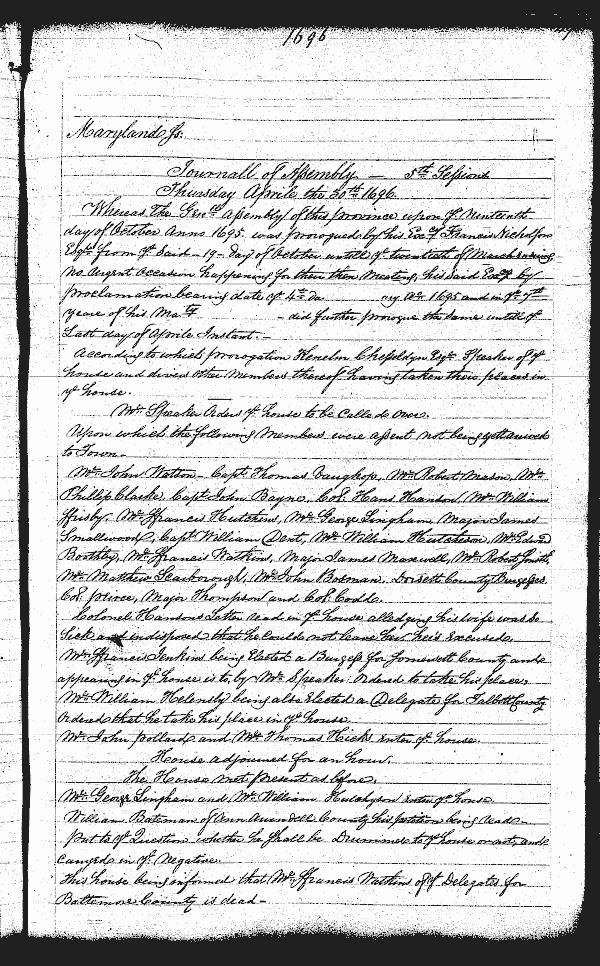 1696
Maryland ss:
Journall of Assembly — 5th Sessions
Thursday Aprile the 30th 1696.
Whereas The Genll Assembly of this province upon ye Nineteenth
day of October Anno 1695. was prorogued by his Excy Francis Nicholson
Esqr from ye Said – 19 – day of October untill ye twentieth of March
no urgent Occasion happening for their then Meeting, his said Excy by
proclamation bearing date ye 4th da ry 1695 and in ye 7th
yeare of his Maty – did further prorogue the same untill ye
Last day of Aprile Instant. –
According to which prorogation Kenelm Cheseldyn Esqr Speaker of ye
house and divers other Members thereof having taken their places in
ye house.
Mr Speaker Orders ye house to be Called over.
Upon which the following Members were absent not being yett arrived
to Town –
Mr John Watson – Capt Thomas Vaughop, Mr Robert Mason, Mr
Phillip Clarke, Capt John Bayne, Col. Hans Hanson, Mr William
ffrisby, Mr ffrancis Hutchins, Mr George Lingham Major James
Smallwood, Capt William Dent, Mr William Hutcheson, Mr Edwd
Boothby, Mr ffrancis Watkins, Major James Maxwell, Mr Robert Smith,
Mr Matthew Scarborough, Mr John Bosman, Dorsett County Burgesses
Col. peirce, Major Thompson and Col. Codd.
Colonel Hansons Letter read in ye house alledging his wife was so
Sick and indisposed that he could not leave her, he is excused.
Mr ffrancis Jenkins being Elected a Burgess for Somersett County and
appearing in ye house is to, by Mr Speaker. Ordered to take his place.
Mr William Helensby being also Elected a Delegate for Talbott County
Ordered that he take his place in ye house.
Mr John pollard and Mr Thomas Hicks. enter ye house.
House adjourned for an hour.
The House met present as before.
Mr George Lingham and Mr William Hutcheson enter ye house
William Bateman of Ann Arundell County his petition being read –
put to ye Question whether he shall be Drummer to ye house or not, and
Carryed in ye Negative.
This house being informed that Mr ffrancis Watkins of ye Delegates for
Baltemore County is dead –